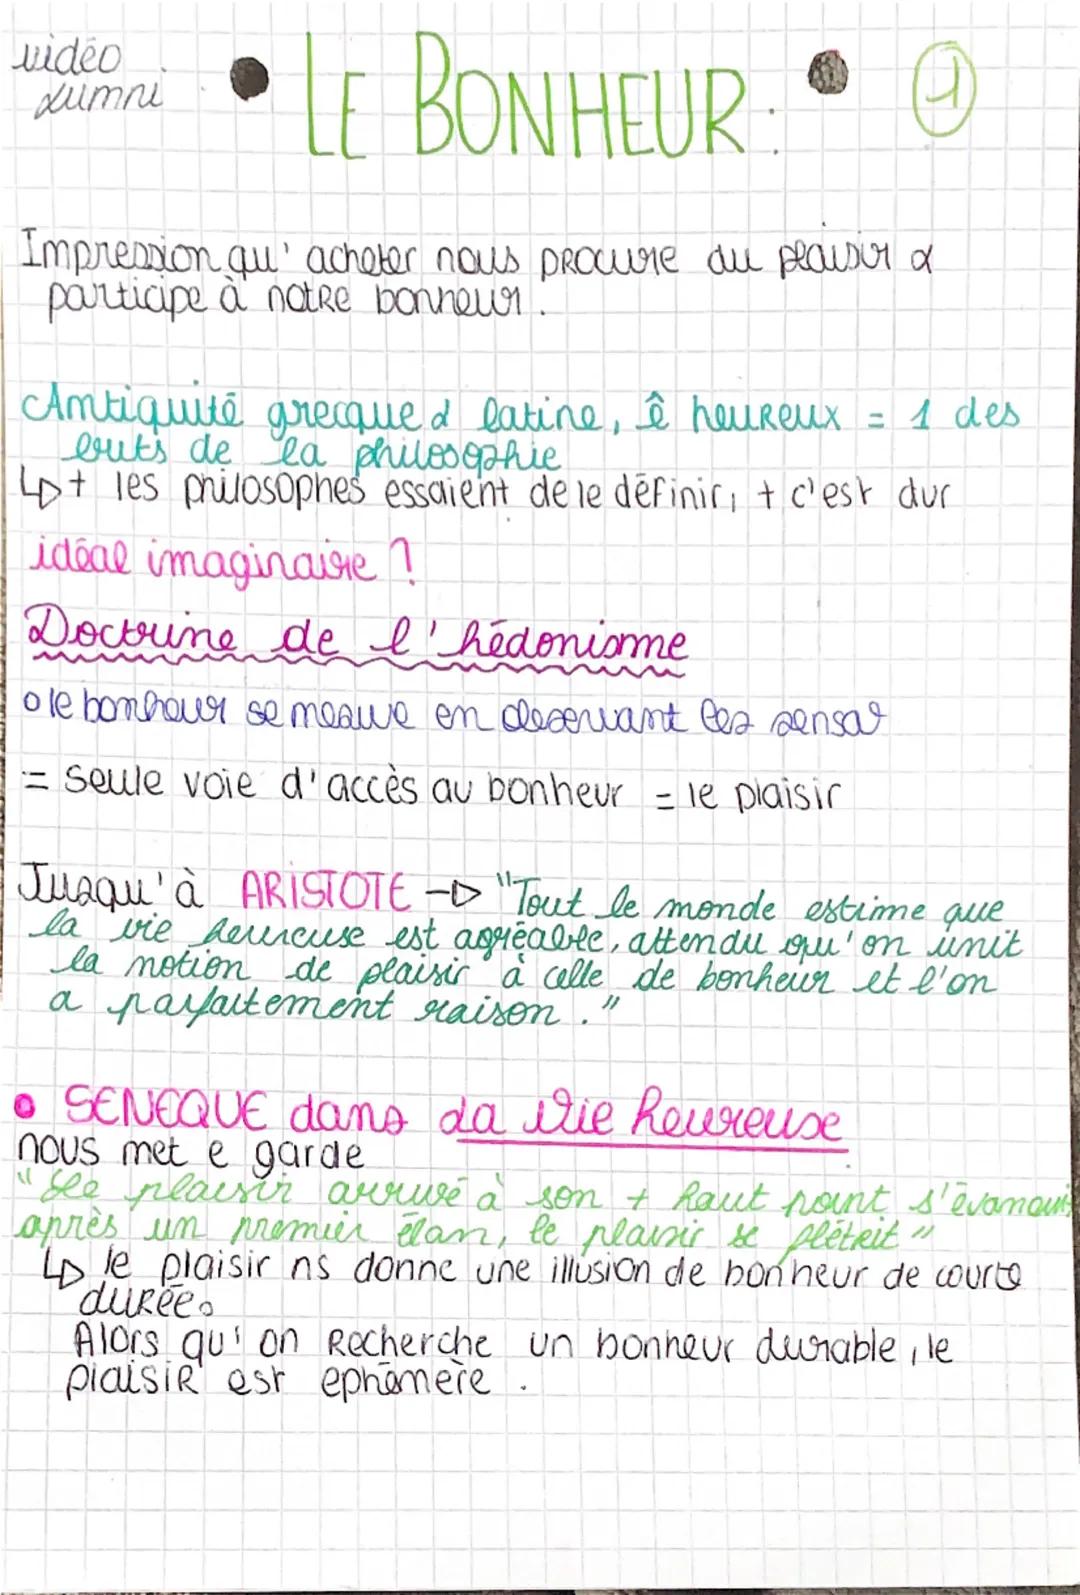 vidéo
Lumni
• LE BONHEUR: •
1
Impression qu' acheter nous procure du plaisir &
participe à notre bonheur.
Antiquité grecque & latine, ê heureux = 1 des
buts de la philosophie
↳ + les philosophes essaient de le définir, + c'est dur
idéal imaginaire ?
Doctrine de l'hédonisme
o le bonheur se mesure en observant les sensa°
:= seule voie d'accès au bonheur = le plaisir
Jusqu'à ARISTOTE → "Tout le monde estime que
la vie heureuse est agréable, attendu qu'on unit
la notion de plaisir à celle de bonheur et l'on
a parfaitement raison."
• SENEQUE dans La Vie heureuse
nous met e garde
"Le plaisir arrivé à son + haut point s'évanouit,
après un premier élan, le plaisir se flétrit"
↳ le plaisir ns donne une illusion de bonheur de courte
durée.
Alors qu'on Recherche un bonheur durable, le
plaisir est ephémère.